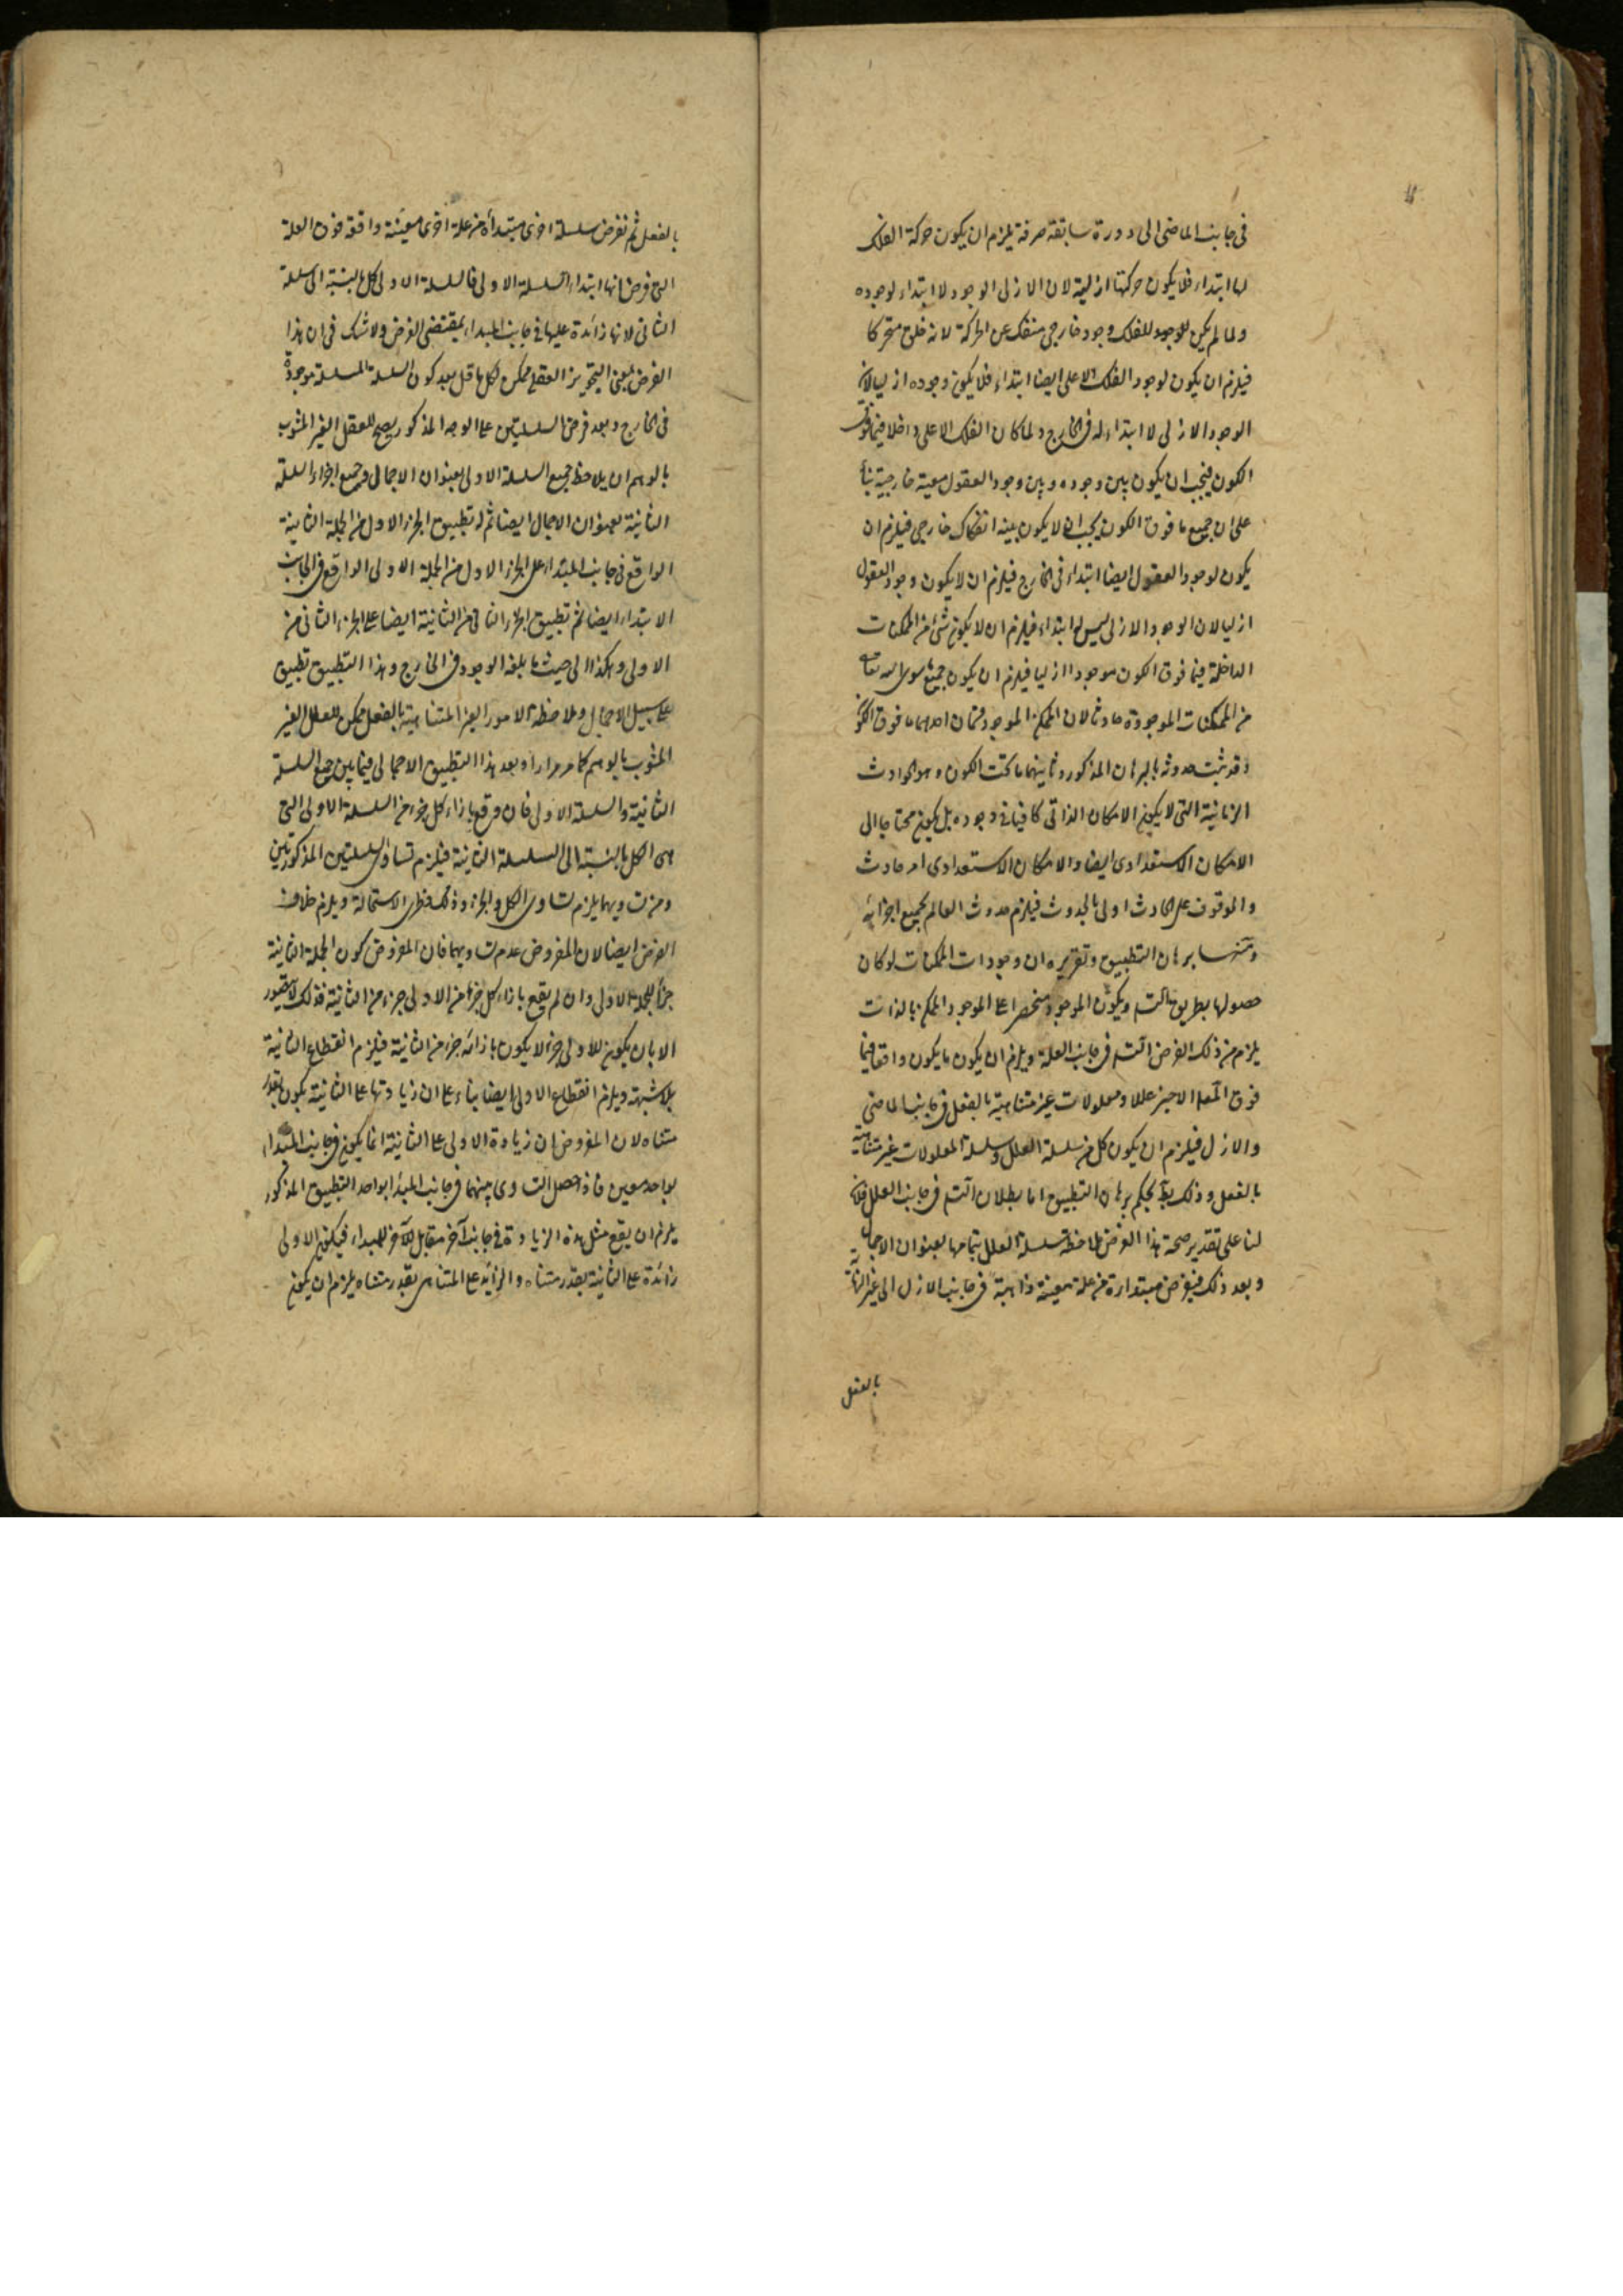 في جانب الماضي الى دورة سابقة صرفة يلزم ان يكون حركة الفلك
لها ابتداء فلا يكون حركتها ازلية لان الازلي الوجود لا ابتداء لوجوده
ولما لم يكن للوجود للفلك وجود خارجي منفك عن الحركة لانه خلق متحركا
فيلزم ان يكون لوجود الفلك الاعلى ايضا ابتداء فلا يكون وجوده ازليا لان
الوجود الازلي لا ابتداء له في الخارج ولما كان الفلك الاعلى داخلا فيما فوق
الكون فيجب ان يكون بين وجوده وبين وجود العقول معية خارجية بناء
على ان جميع ما فوق الكون يجب ان لا يكون بينه انفكاك خارجي فيلزم ان
يكون لوجود العقول ايضا ابتداء في الخارج فيلزم ان لا يكون وجود العقول
ازليا لان الوجود الازلي ليس له ابتداء فيلزم ان لا يكون شئ من الممكنات
الداخلة فيما فوق الكون موجودا ازليا فيلزم ان يكون جميع ما سوى الله تعالى
من الممكنات الموجودة حادثا لان الممكن الموجود قسمان احدهما ما فوق الكون
وقد ثبت حدوثه بالبرهان المذكور وثانيهما ما تحت الكون وهو الحوادث
الزمانية التي لا يكون الامكان الذاتي كافيا في وجوده بل يكون محتاجا الى
الامكان الاستعدادي ايضا والامكان الاستعدادي امر حادث
والموقوف على الحادث اولى بالحدوث فيلزم حدوث العالم بجميع اجزائه
ومنها برهان التطبيق وتقريره ان وجودات الممكنات لو كان
حصولها بطريق التسـ ويكون الموجود منحصرا على الموجود الممكن بالذات
يلزم من ذلك الفرض التسـ في جانب العلة ويلزم ان يكون ما يكون واقعا فيما
فوق المعلـ الاخير عللا ومعلولات غير متناهية بالفعل في جانب الماضي
والازل فيلزم ان يكون كل من سلسلة العلل وسلسلة المعلولات غير متناهية
بالفعل وذلك بط بحكم برهان التطبيق اما بطلان التسـ في جانب العلل فلان
لنا على تقدير صحة هذا الفرض ملاحظة سلسلة العلل بتمامها بعنوان الاجمال
وبعد ذلك فنفرض مبتدارة من علة معينة ذاهبة في جانب الازل الى غير النهاية
بالفعل
بالفعل ثم نفرض سلسلة اخرى مبتدأة من علة اخرى معينة واقعة فوق العلة
التي فرضنا انها ابتداء السلسلة الاولى فالسلسلة الاولى كل بالنسبة الى السلسلة
الثاني لانها زائدة عليها في جانب المبداء بمقتضى الفرض ولا شك في ان هذا
الفرض بمعنى التجويز العقلي ممكن لكل عاقل بعد كون السلسلة المسلسلة موجودة
في الخارج وبعد فرض السلسلتين على الوجه المذكور يصح للعقل الغير المشوب
بالوهم ان يلاحظ جميع السلسلة الاولى بعنوان الاجمال وجميع اجزاء السلسلة
الثانية بعنوان الاجمال ايضا ثم له تطبيق الجزء الاول من الجملة الثانية
الواقع في جانب المبتداء على الجزء الاول من الجملة الاولى الواقع في الجانب
الابتداء ايضا ثم تطبيق الجزء الثاني من الثانية ايضا على الجزء الثاني من
الاولى وهكذا الى حيث ما بلغه الوجود في الخارج وهذا التطبيق تطبيق
على سبيل الاجمال وملاحظة الامور الغير المتناهية بالفعل ممكن للعقل الغير
المشوب بالوهم كما مر مرارا وبعد هذا التطبيق الاجمالي فيما بين جميع السلسلة
الثانية والسلسلة الاولى فان وقع بازاء كل جزء من السلسلة الاولى التي
هي الكل بالنسبة الى السلسلة الثانية فيلزم تساوي السلسلتين المذكورتين
ومن تساويهما يلزم تساوي الكل والجزء وذلك فطري الاستحالة ويلزم خلاف
الفرض ايضا لان المفروض عدم تساويهما فان المفروض كون الجملة الثانية
جزأ للجملة الاولى وان لم يقع بازاء كل جزء من الاولى جزء من الثانية فذلك لا يتصور
الا بان يكون للاولى جزء لا يكون بازائه جزء من الثانية فيلزم انقطاع الثانية
بلا شبهة ويلزم انقطاع الاولى ايضا بناء على ان زيادتها على الثانية يكون بقدر
متناه لان المفروض ان زيادة الاولى على الثانية انما يكون في جانب المبداء
بواحد معين فاذا حصل التساوي بينهما في جانب المبدأ بواحد التطبيق المذكور
يلزم ان يقع مثل هذه الزيادة في جانب آخر مقابل للآخر للمبداء فيكون الاولى
زائدة على الثانية بقدر متناه والزائد على المتناهي بقدر متناه يلزم ان يكون